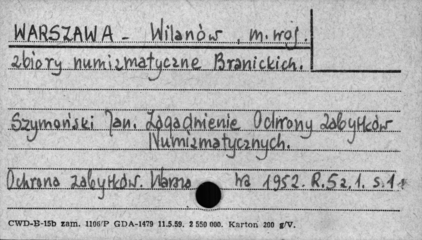 WARSZAWA - Wilanów, m. woj.
zbiory numizmatyczne Branickich.
Szymański Jan. Zagadnienie Ochrony Zabytków
Numizmatycznych.
Ochrona Zabytków. Warsza wa 1952. R. 5 z. 1. s. 11
CWD-B-15b zam. 1106/P GDA-1479 11.5.59. 2 550 000. Karton 200 g/V.